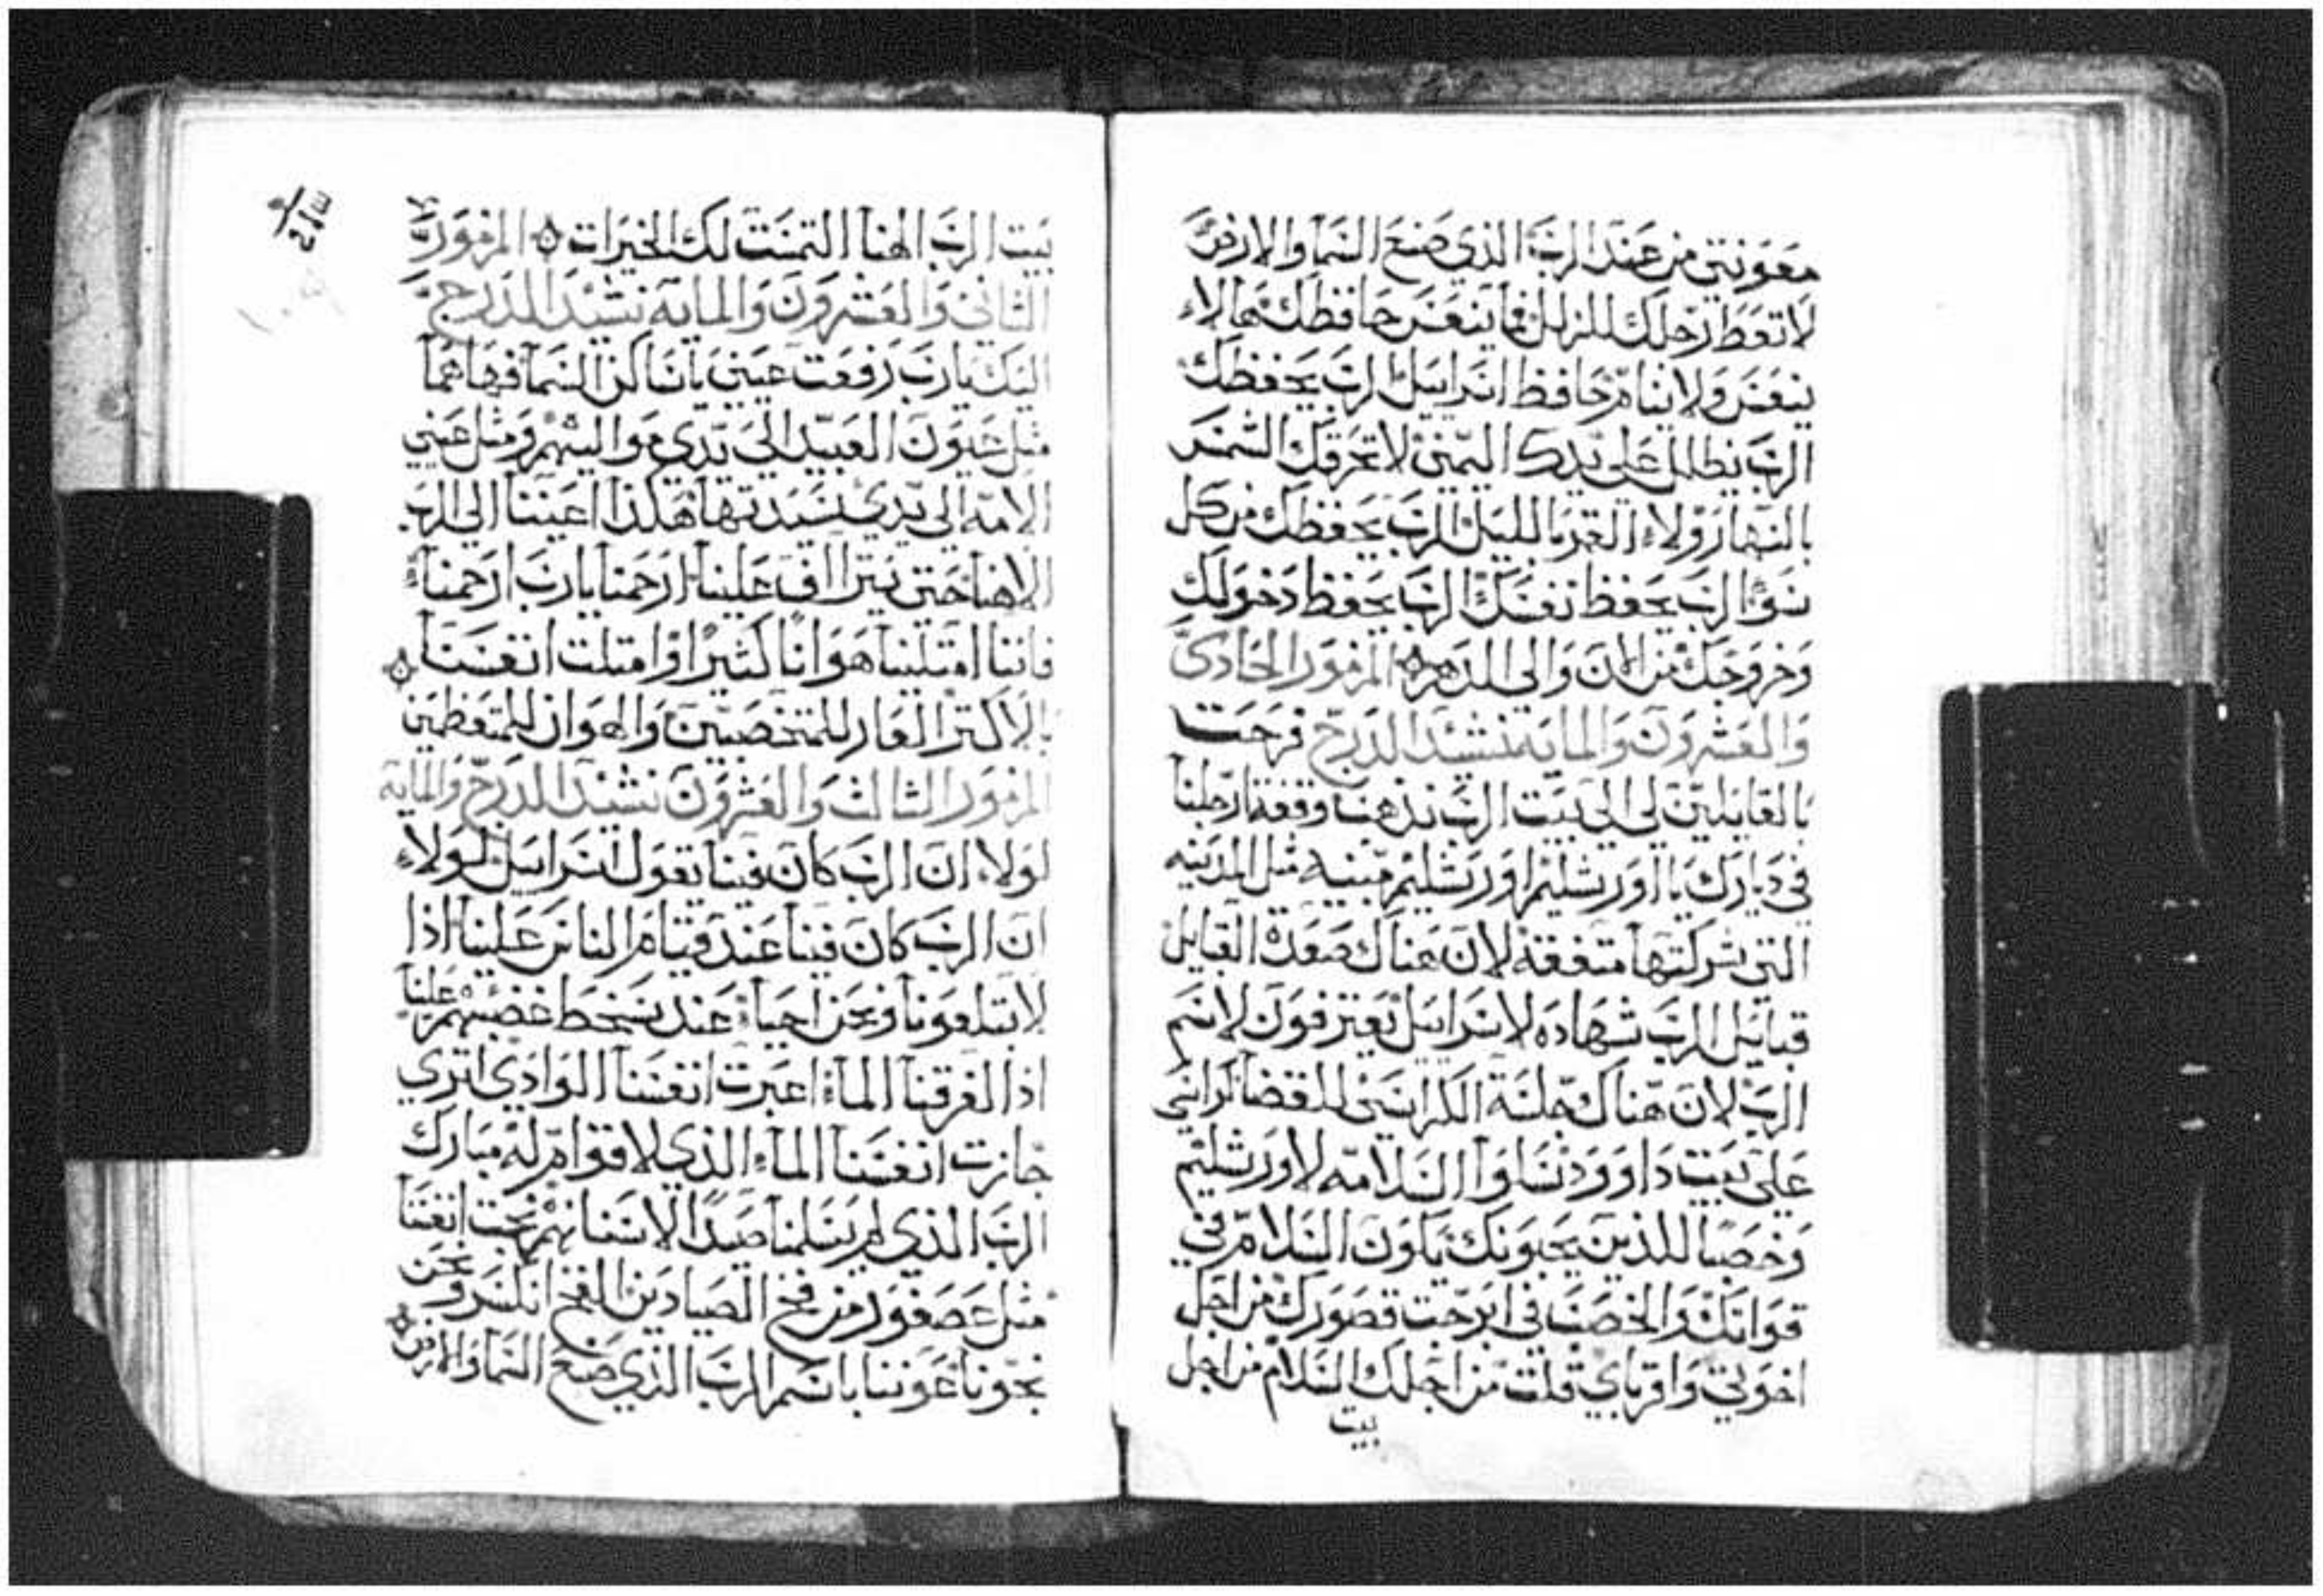 معونتي من عند الرب الذي صنع السما والارض
لا تعط رجلك للزلل فما ينعس حافظك هالاء
ينعس ولا ينام حافظ اسراييل الرب يحفظك
الرب يظلل على يدك اليمنى لا تحرقك الشمس
بالنهار ولاء القمر بالليل الرب يحفظك من كل
سوء الرب يحفظ نفسك الرب يحفظ دخولك
وخروجك من الان والى الدهر المزمور الحادي
والعشرون والمايه نشيد الدرج فرحت
بالقايلين لي الى بيت الرب نذهب وقفة ارجلنا
في ديارك يا اورشليم اورشليم مبنيه مثل المدينه
التي شركتها متفقه لان هناك صعدة القبايل
قبايل الرب شهاده لاسراييل يعترفون لاسم
الرب لان هناك جلسة الكراسي للقضا كراسي
على بيت داوود سلوا السلامه لاورشليم
وخصبا للذين يحبونك يكون السلام في
قواتك والخصب في ابرجت قصورك من اجل
اخوتي واقرباي قلت من اجلك السلام من اجل
بيت
بيت الرب الهنا التمست لك الخيرات المزمور
الثاني والعشرون والمايه نشيد الدرج
اليك يا رب رفعت عيني يا ساكن السما فها هما
مثل عيون العبيد الى يدي مواليهم ومثل عيني
الامه الى يدي سيدتها هكذا اعيننا الى الرب
الاهنا حتى يتراف علينا ارحمنا يا رب ارحمنا
فاننا امتلينا هوانا كثيرا وامتلت انفسنا
بالاكثر العار للمتخصبين والهوان للمتعظمين
المزمور الثالث والعشرون نشيد الدرج والمايه
لولاء ان الرب كان فينا يقول اسراييل لولاء
ان الرب كان فينا عند قيام الناس علينا اذا
لابتلعونا ونحن احياء عند سخط غضبهم علينا
اذا لغرقنا الماء اعبرت انفسنا الوادي اترى
جازت انفسنا الماء الذي لا قوام له مبارك
الرب الذي لم يسلمنا صيدا لاسنانهم نجت انفسنا
مثل عصفور من فخ الصيادين الفخ انكسر ونحن
نجونا عوننا باسم الرب الذي صنع السما والارض